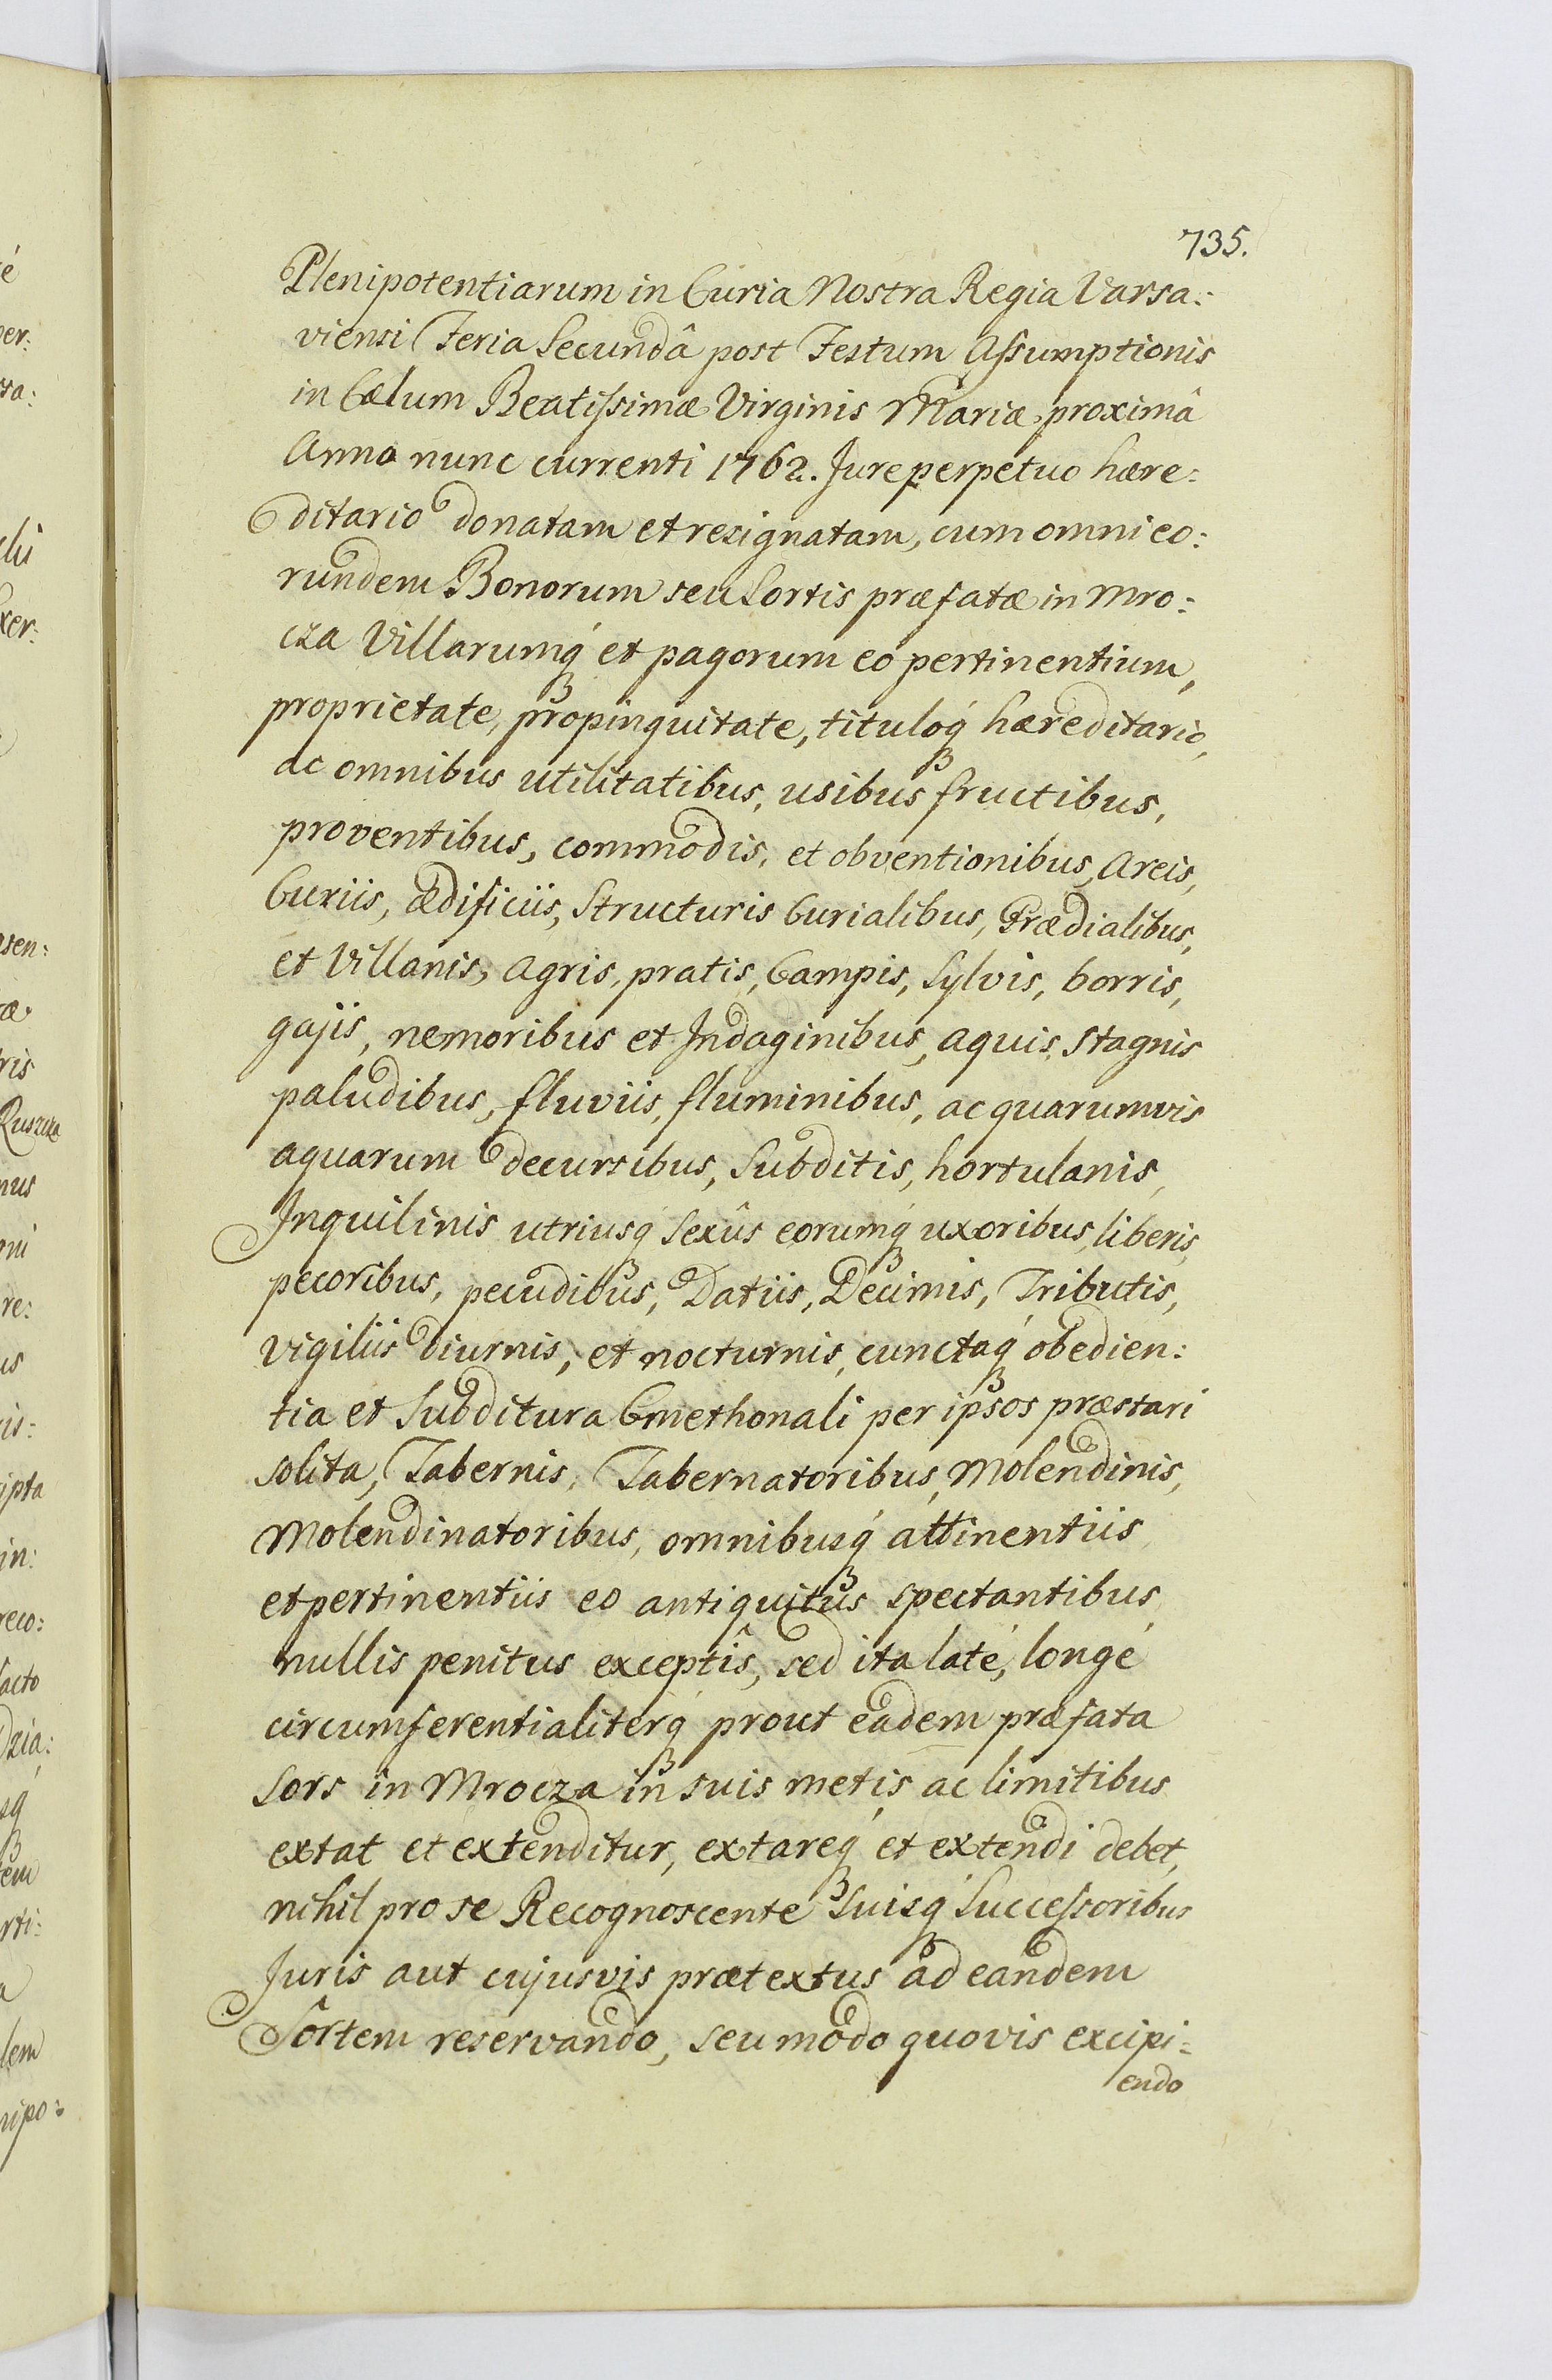 735.
Plenipotentiarum in Curia Nostra Regia Varsa:
viensi Feria Secundâ post Festum Aſsumptionis
in Cælum Beatiſsimæ Virginis Mariæ proximâ
Anno nunc currenti 1762. Jure perpetuo hære:
ditario donatam et resignatam, cum omni eo:
rundem Bonorum seu Sortis præfatæ in Mro:
cza Villarumq́ et pagorum eo pertinentium,
proprietate, propinquitate, tituloq́ hæreditario,
ac omnibus utilitatibus, usibus fructibus,
proventibus, commodis, et obventionibus, Areis,
Curiis, ædificiis, Structuris Curialibus, Prædialibus,
et Villanis, Agris, pratis, Campis, Sylvis, borris,
gajis, nemoribus et Indaginibus, aquis, stagnis
paludibus, fluviis, fluminibus, ac quarumvis
aquarum decursibus, Subditis, hortulanis,
Inquilinis utriusq́ Sexûs eorumq́ uxoribus, liberis,
pecoribus, pecudibus, Datiis, Decimis, Tributis,
vigiliis diurnis, et nocturnis, cunctaq́ obedien:
tia et Subditura Cmethonali per ipsos præstari
solita, Tabernis, Tabernatoribus, Molendinis,
Molendinatoribus, omnibusq́ attinentiis
et pertinentiis eo antiquitus spectantibus,
nullis penitus exceptis, sed ita laté, longé
circumferentialiterq́ prout eadem præfata
Sors in Mrocza in suis metis ac limitibus
extat et extenditur, extareq́ et extendi debet,
nihil pro se Recognoscente Suisq́ Succeſsoribus
Juris aut cujusvis prætextus ad eandem
Sortem reservando, seu modo quovis excipi:
endo